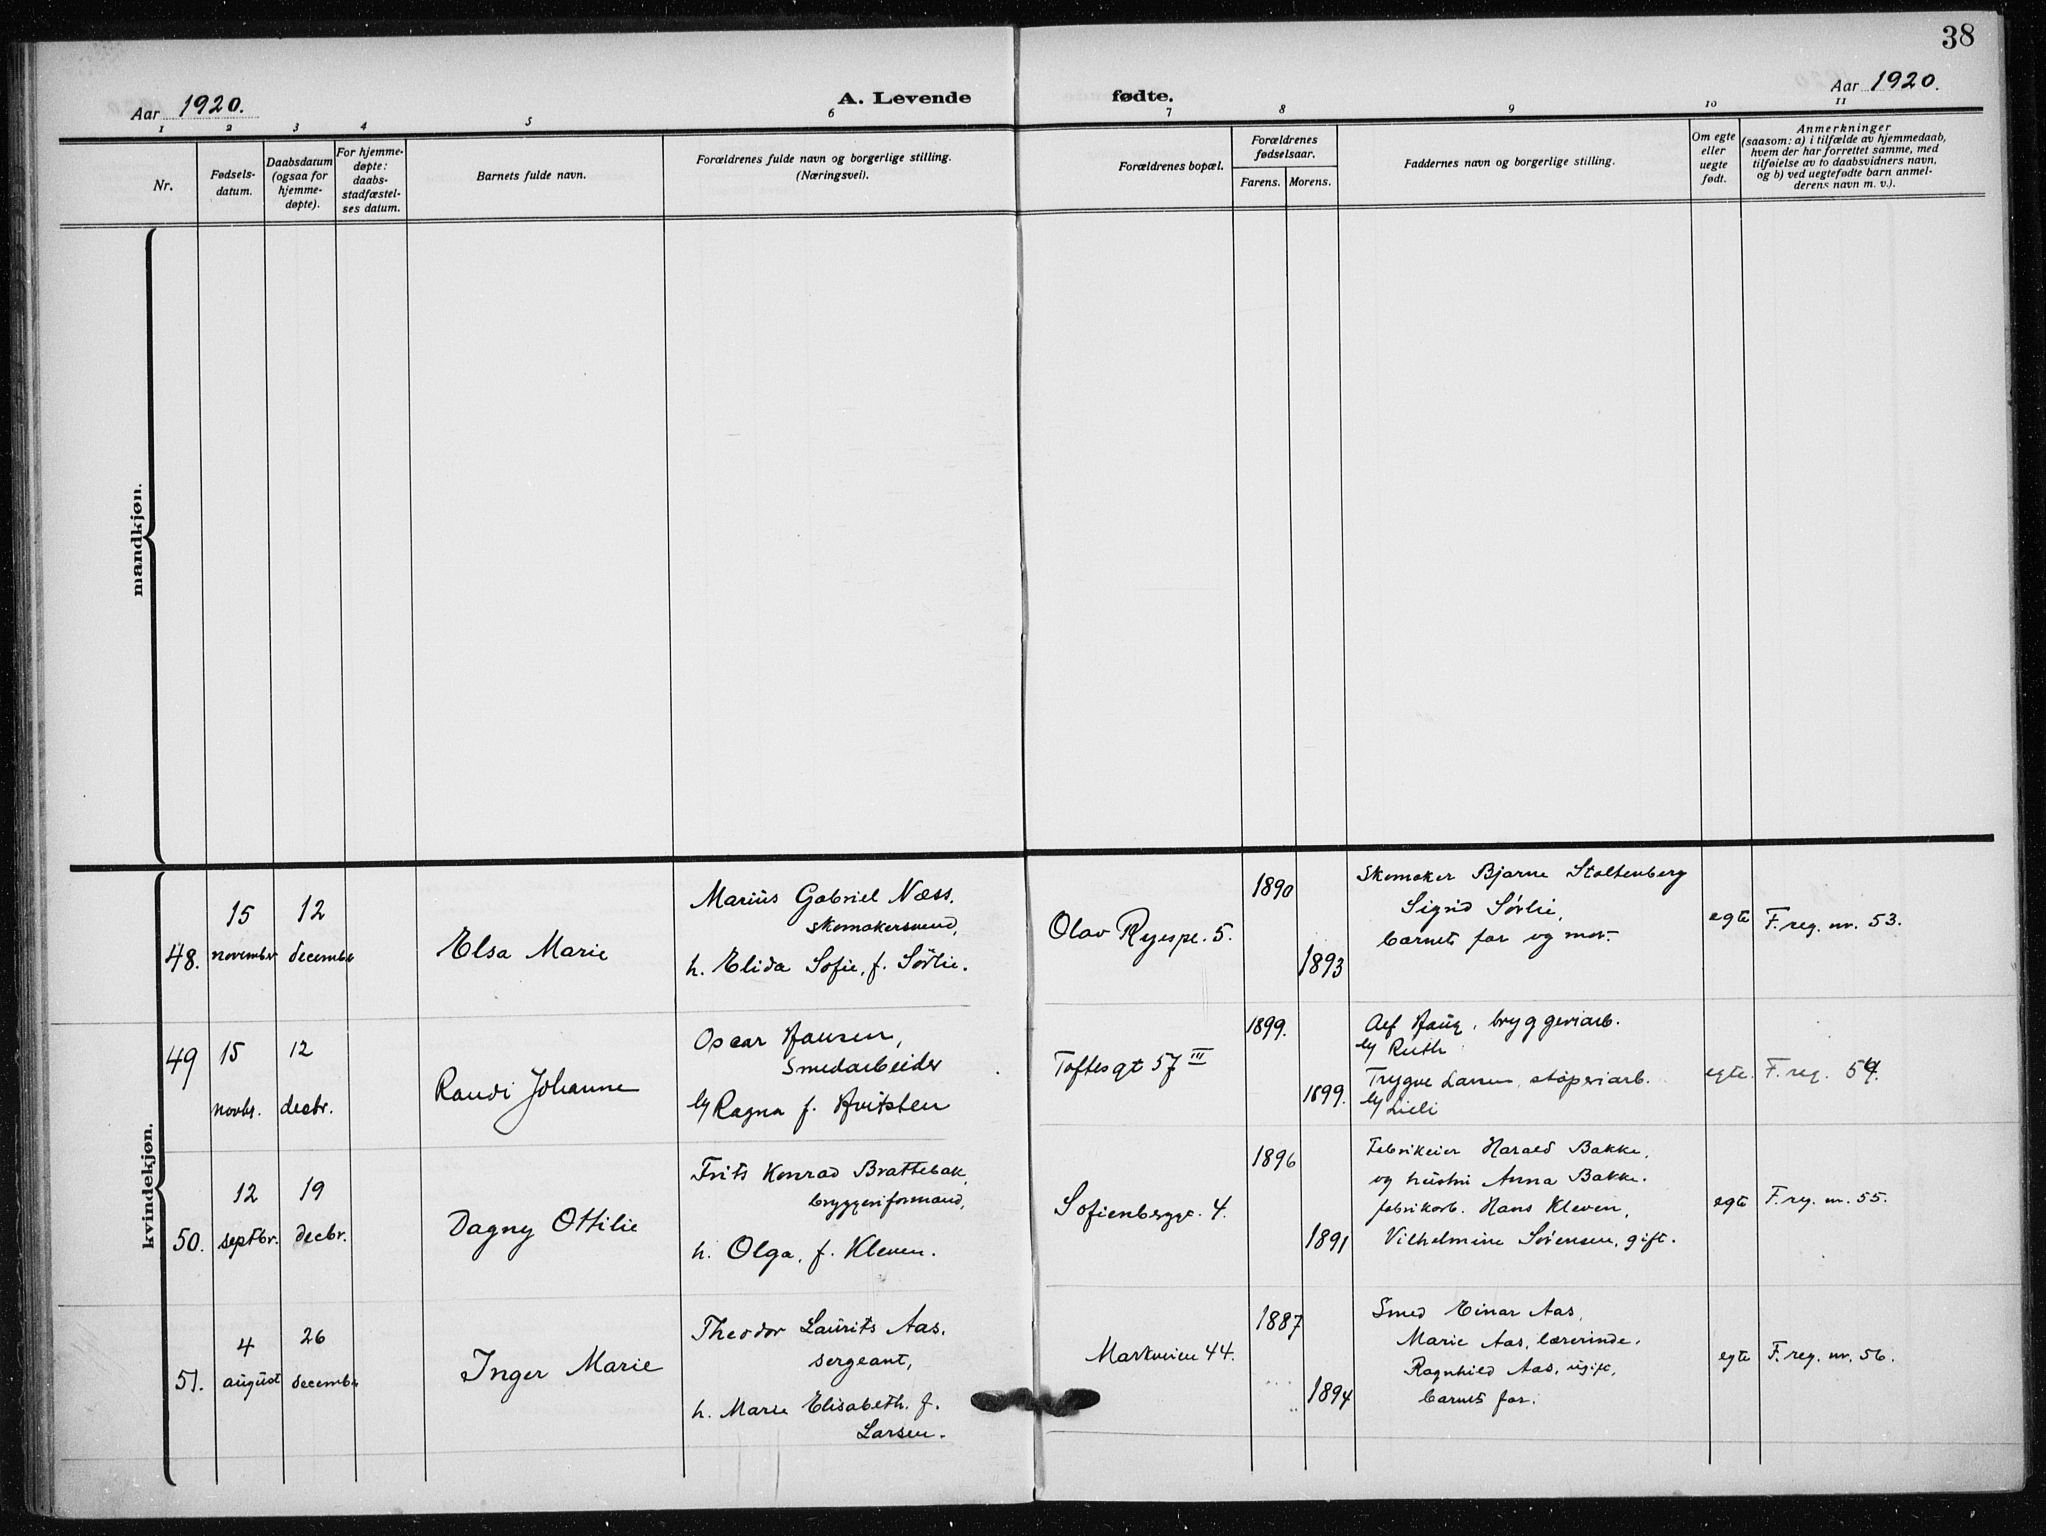 38
Aar 1920.
A. Levende fødte.
Aar 1920.
1 2 3 4 5 6 7 8 9 10 11
Nr.
Fødsels-
datum.
Daabsdatum
(ogsaa for
hjemme-
døpte).
For hjemme-
døpte:
daabs-
stadfæstel-
ses datum.
Barnets fulde navn.
Forældrenes fulde navn og borgerlige stilling.
(Næringsvei).
Forældrenes bopæl.
Forældrenes
fødselsaar.
Farens. Morens.
Faddernes navn og borgerlige stilling.
Om egte
eller
uegte
født.
Anmerkninger
(saasom: a) i tilfælde av hjemmedaab,
hvem der har forrettet samme, med
tilføielse av to daabsvidners navn,
og b) ved uegtefødte barn anmel-
derens navn m. v.).
mandkjøn.
kvindekjøn.
48.
15
november
12
december
Elsa Marie
Marius Gabriel Næss,
skomakersvend,
h. Elida Sofie, f. Sørlie.
Olav Ryespl. 5.
1890
1893
Skomaker Bjarne Stoltenberg
Sigrid Sørlie,
barnets far og mor.
egte
F. reg. nr. 53.
49
15
novbr.
12
decbr.
Randi Johanne
Oscar Hansen,
Smedarbeider
h Ragna f. Hvitsten
Toftesgt 57 III
1899.
1899.
Alf Haug, bryggeriarb.
h Ruth
Trygve Larsen, støperiarb.
h Lieli
egte.
F. reg. 54.
50.
12
septbr.
19
decbr.
Dagny Ottilie
Frits Konrad Brattebak,
bryggeriformand,
h. Olga, f. Kleven.
Sofienberggt. 4.
1896
1891
Fabrikeier Harald Bakke,
og hustru Anna Bakke.
fabrikarb. Hans Kleven,
Vilhelmine Sørensen, gift.
egte
F. reg. nr. 55.
51.
4
august
26
december
Inger Marie
Theodor Laurits Aas,
sergeant,
h. Marie Elisabeth. f.
Larsen.
Markveien 44.
1887
1894
Smed Einar Aas,
Marie Aas, lærerinde,
Ragnhild Aas, ugift,
barnets far.
egte
F. reg. nr. 56.